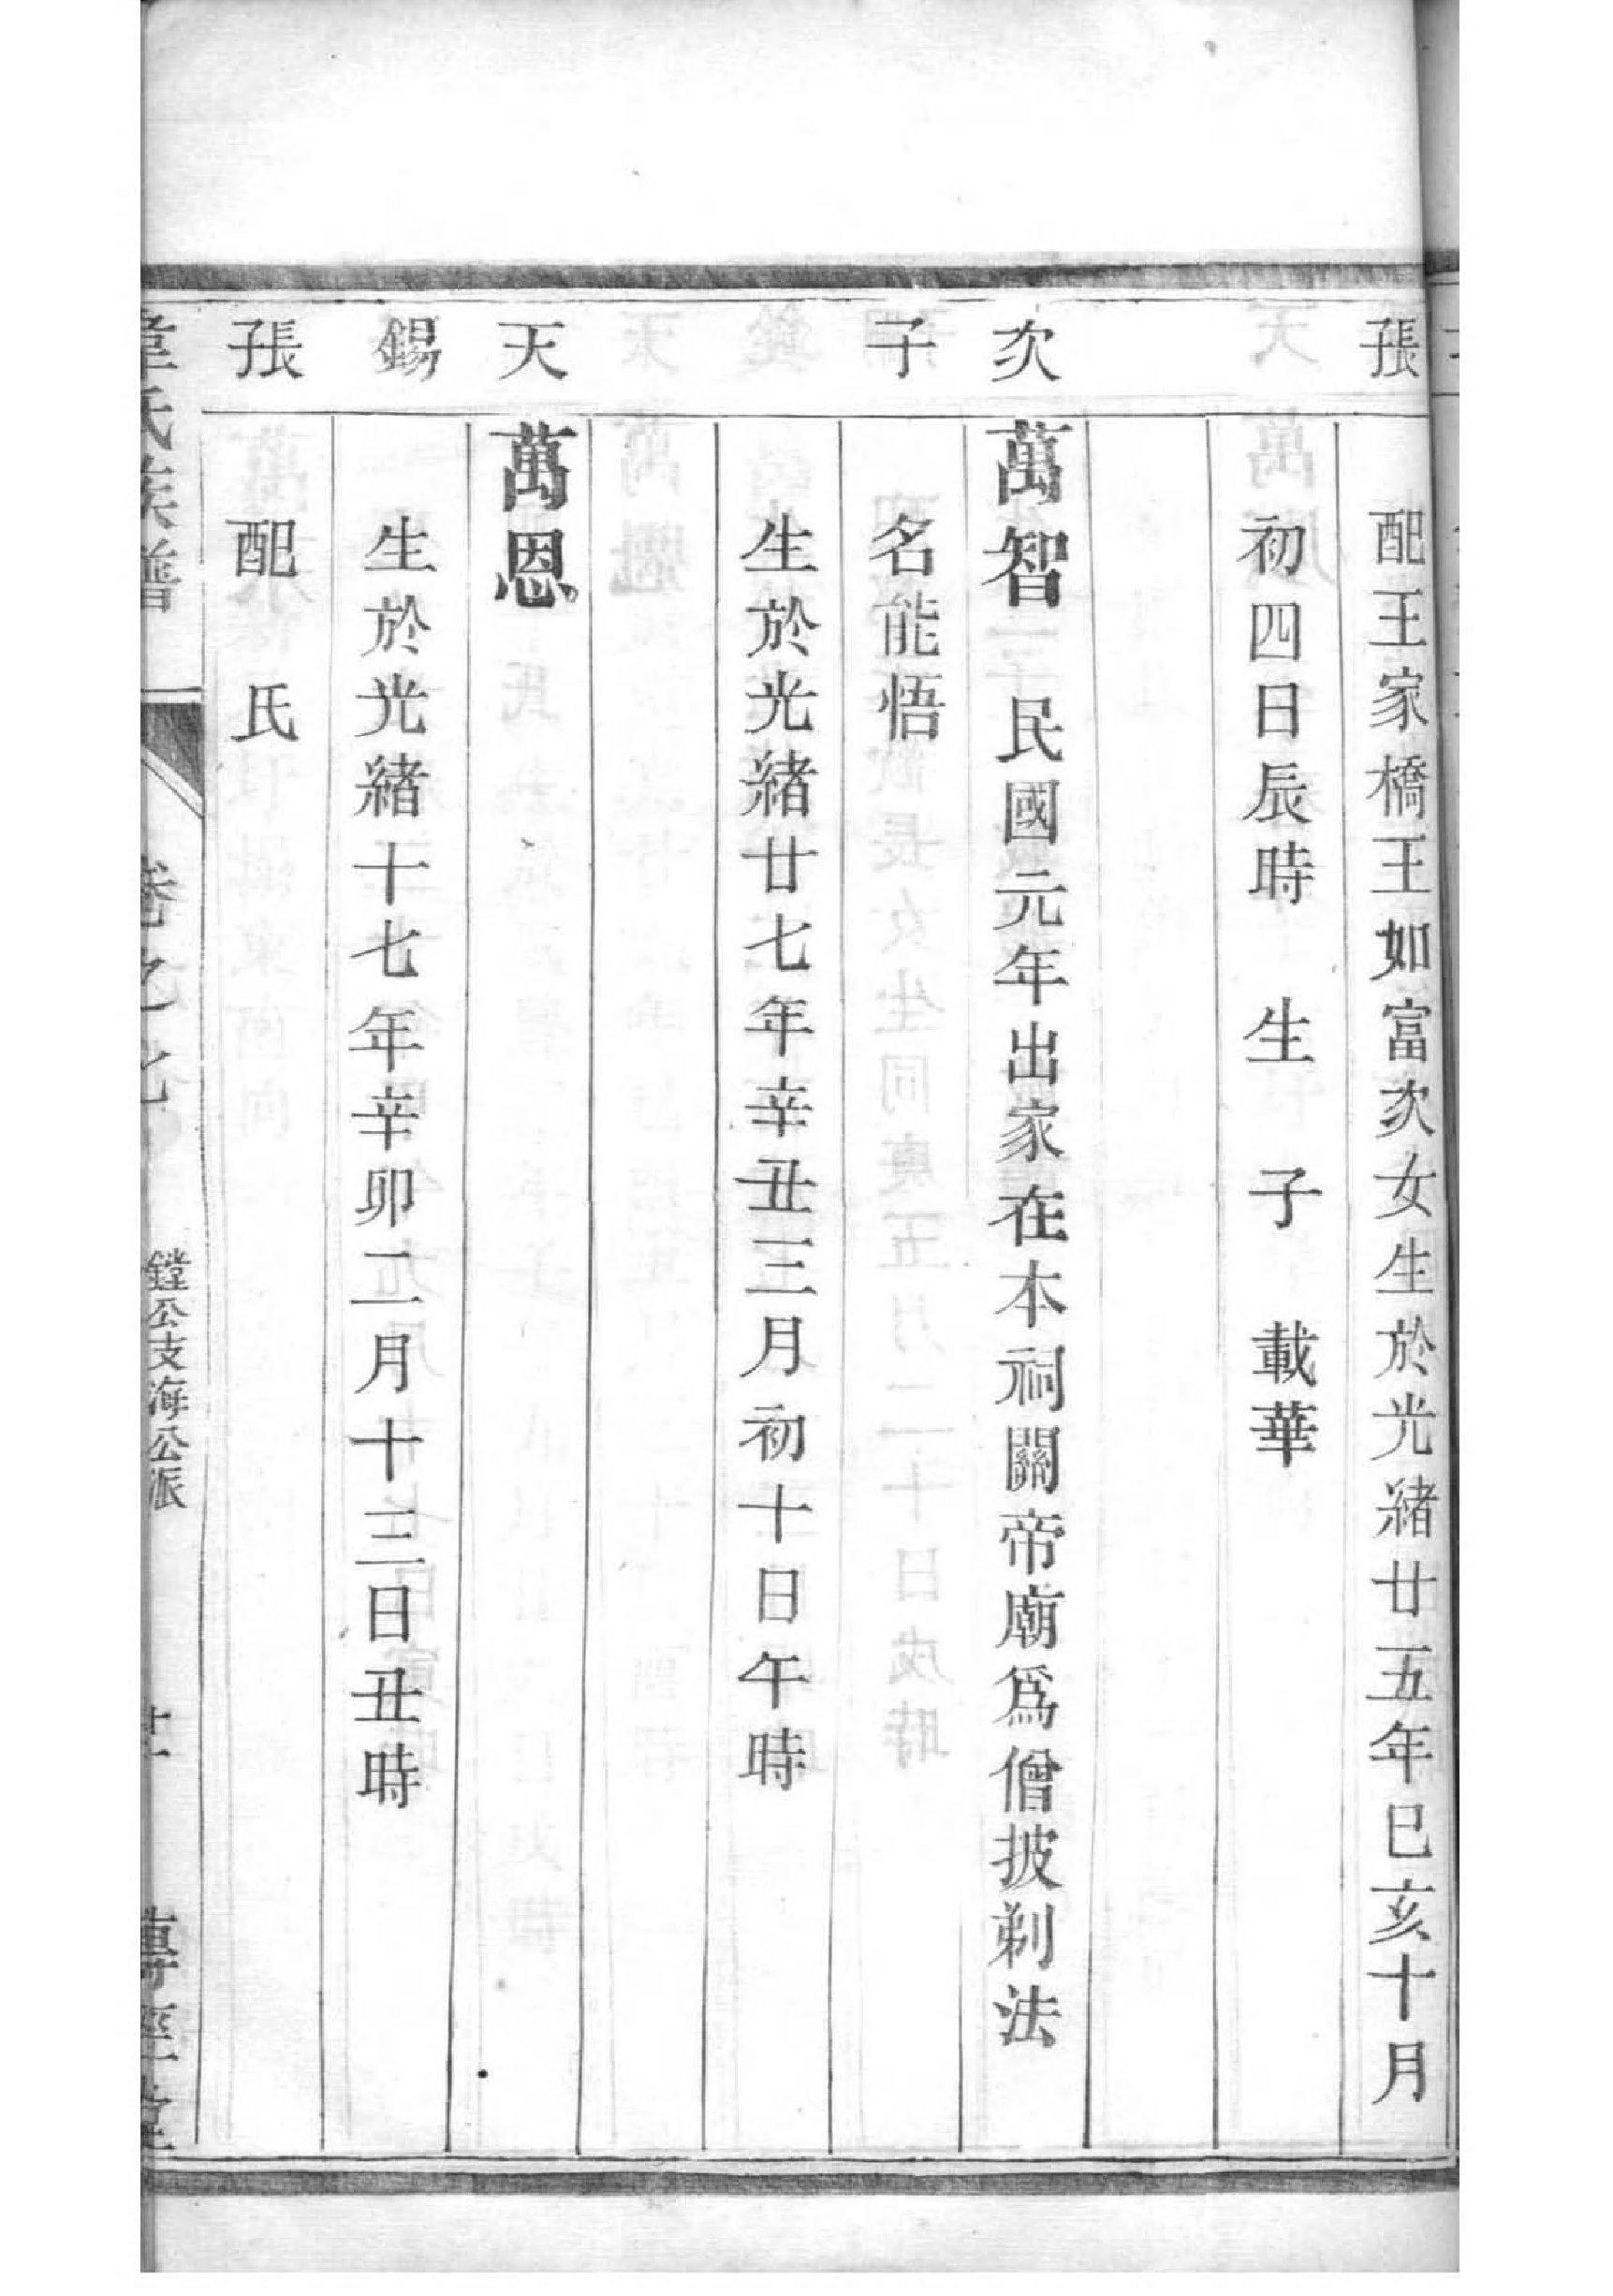 張
配王家橋王如富次女生於光緒廿五年巳亥十月
初四日辰時 生 子 載華
次
萬智 民國元年出家在本祠關帝廟爲僧披剃法
子
名能悟
生於光緒廿七年辛丑三月初十日午時
天
萬恩
錫
生於光緒十七年辛卯二月十三日丑時
張
配 氏
章氏族譜
卷之七
鏜公支海公派
傳經堂